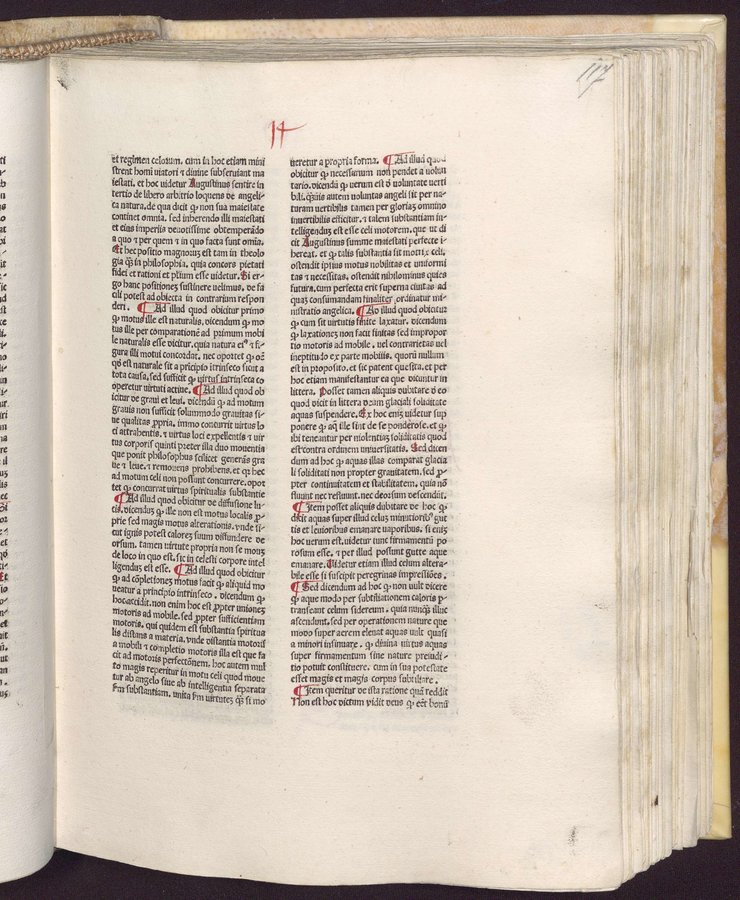 117
14
et regimen celorum. cum in hoc etiam mini
strent homini viatori ⁊ diuine subseruiant ma
iestati. et hoc uidetur Augustinus sentire in
tertio de libero arbitrio loquens de angeli⸗
ca natura. de qua dicit ꝙ non sua maiestate
continet omnia. sed inherendo illi maiestati
et eius imperiis deuotissime obtemperādo
a quo ⁊ per quem ⁊ in quo facta sunt omīa.
Et hec positio magnorum est tam in theolo
gia ꝙ̄ in philosophia. quia concors pietati
fidei et rationi et piium esse uidetur. Si er⸗
go hanc positionez sustinere uelimus. de fa
cili potest ad obiecta in contrarium respon
deri. ¶ Ad illud quod obicitur primo
ꝙ motus ille est naturalis. dicendum ꝙ mo
tus ille per comparationē ad primum mobi
le naturalis esse dicitur. quia natura eiꝰ ⁊ fi⸗
gura illi motui concordat. nec oportet ꝙ oē
qđ est naturale sit a pricipio itrinseco sicut a
tota causa. sed sufficit ꝙ uirtus intrinseca co
operetur uirtuti actiue. ¶ Ad illud quod ob
icitur de graui et leui. dicendū ꝙ ad motum
grauis non sufficit solummodo grauitas si⸗
ue qualitas ꝓpria. immo concurrit uirtus lo
ci attrahentis. ⁊ uirtus loci expellentis ⁊ uir
tus corporis quinti preter illa duo mouentia
que ponit philosophus scilicet generās gra
ue ⁊ leue. ⁊ remouens prohibens. et ꝙ hec
ad motum celi non possunt concurrere. opor
tet ꝙ concurrat uirtus spiritualis substantie
¶ Ad illud quod obicitur de diffusione lu⸗
tis. dicendus ꝙ ille non est motus localis ꝓ⸗
prie sed magis motus alterationis. vnde si⸗
cut ignis potest calores suum diffundere de
orsum. tamen uirtute propria non se mouz
de loco in quo est. sic in celesti corpore intel
ligendus est esse. ¶ Ad illud quod obicitur
ꝙ ad cōpletionez motus facit ꝙ aliquid mo
ueatur a principio intrinseco. dicendum ꝙ
hoc accidit. non enim hoc est ꝓpter unionez
motoris ad mobile. sed ꝓpter sufficientiam
motoris. qui quidem est substantia spiritua
lis distans a materia. vnde distantia motoris
a mobili ⁊ completio motoris illa est que fa
cit ad motoris perfectōnem. hoc autem mul
to magis reperitur in motu celi quod moue
tur ab angelo siue ab intelligentia separata
ẜm substantiam. unita ẜm uirtutez ꝙ̄ si mo
ueretur a propria forma. ¶ Ad illud quod
obicitur ꝙ necessarium non pendet a volun
tario. dicendū ꝙ uerum est ō voluntate uerti
bili. ꝙ̄uis autem voluntas angeli sit per na⸗
turam uertibilis tamen per gloriaʒ omnino
inuertibilis efficitur. ⁊ talem substantiam in⸗
telligendus est esse celi motorem. que ut di
cit Augustinus summe maiestati perfecte i⸗
hereat. et ꝙ talis substantia sit motrix celi.
ostendit ipsius motus nobilitas et uniformi
tas ⁊ necessitas. ostendit nihilominus quies
futura. cum perfecta erit superna ciuitas ad
quaʒ consumandam finaliter ordinatur mi⸗
nistratio angelica. ¶ Ad illud quod obicitur
ꝙ cum sit uirtutis finite laxatur. dicendum
ꝙ laxationez non facit finitas sed impropor
tio motoris ad mobile. uel contrarietas uel
ineptitudo ex parte mobilis. quorū nullum
est in proposito. et sic patent quesita. et per
hoc etiam manifestantur ea que dicuntur in
littera. Posset tamen aliquis dubitare ō eo
quod dicit in littera ōcam glaciali soliditate
aquas suspendere. Ex hoc enīz uidetur sup
ponere ꝙ aq̄ ille sint de se ponderose. et ꝙ
ibi teneantur per uiolentiaʒ soliditatis quod
est contra ordinem uniuersitatis. Sed dicen
dum ad hoc ꝙ aquas illas comparat glacia
li soliditati non propter grauitatem. sed ꝓ⸗
pter continuitatem et stabilitatem. quia nō
fluunt nec refluunt. nec deorsum descendūt.
¶ Item posset aliquis dubitare de hoc ꝙ
dicit aquas super illud celuz minutioribꝰ gut
tis et leuioribus emanare uaporibus. si enīz
hoc uerum est. uidetur tunc firmamentū po
rosum esse. ⁊ per illud possunt gutte aque
emanare. Uidetur etiam illud celum altera⸗
bile esse si suscipit peregrinas impressiōes.
¶ Sed dicendum ad hoc ꝙ non uult dicere
ꝙ aque modo per subtiliationem caloris ꝓ
transeant celum sidereum. quia nunꝙ̄ illuc
ascendunt. sed per operationem nature que
modo super aerem eleuat aquas uult quasi
a minori insinuare. ꝙ diuina uirtus aquas
super firmamentum sine nature preiudi⸗
tio potuit constituere. cum in sua potestate
esset magis et magis corpus subtiliare.
¶ Item queritur de ista ratione quā reddit
Non est hoc dictum vidit deus ꝙ eēt bonū